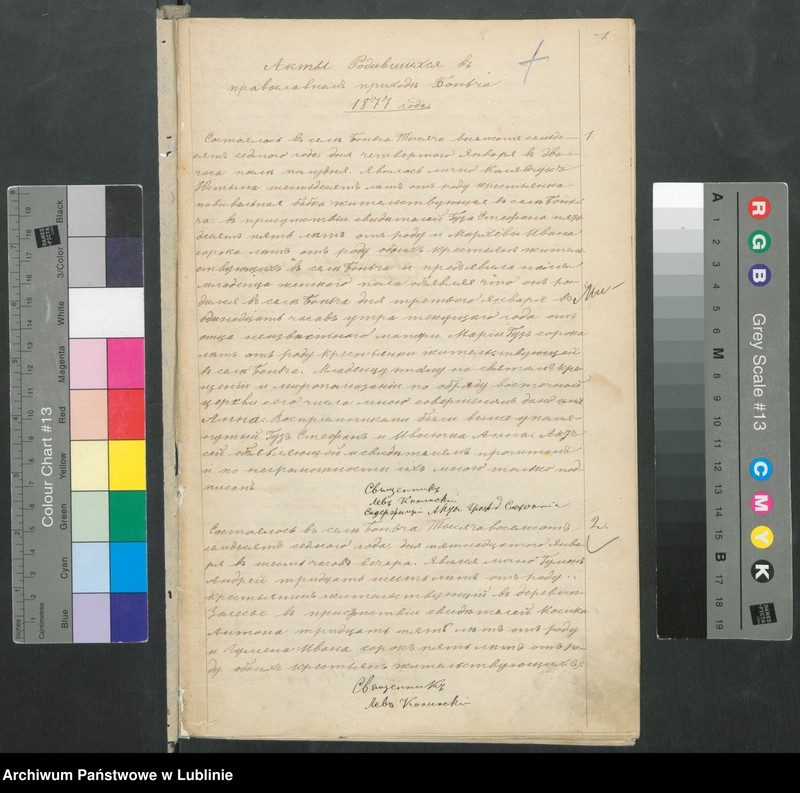 1
Акты Родившихся въ
православномъ приходѣ Бончѣ
1877 года.
1.
Состоялось въ селѣ Бонча Тысяча восемсотъ семьде-
сятъ седмого года, дня четвертого Января въ два
часа пополудни. Явилась лично
Устына шестьдесятъ лѣтъ отъ роду крестьянка
повивальная бабка жительствующая въ селѣ Бонь-
ча, въ присутствіи свидѣтелей Гузъ Стефана пять-
десятъ пять лѣтъ отъ роду и Ивана
сорока лѣтъ отъ роду обоихъ крестьянъ житель-
ствующихъ въ селѣ Бонча и предъявила намъ
младенца женского пола объявляя что онъ ро-
дился въ селѣ Бонча дня третьего Января въ
одинадцать часовъ утра текущаго года отъ
отца неизвѣстного матери Маріи Гузъ сорока
лѣтъ отъ роду крестьянки жительствующей
въ селѣ Бонча. Младенцу тому на святомъ кре-
щеніи и миропомазаніи по обряду восточной
церкви сего числа мною совершенномъ дано имя
Анна. Воспріемниками были выше упомя-
нутый Гузъ Стефанъ и Анна. Актъ
сей объявляющей и свидѣтелямъ прочитанъ
и по неграмотности ихъ мною только под
писанъ
Священникъ
Левъ
Содержащій Акты Гражд. Состоянія
2.
Состоялось въ селѣ Бонча Тысяча восемсотъ
семдесятъ седмого года, дня пятнадцатого Янва-
ря въ часовъ вечера. Явился лично
Андрей тридцать шесть лѣтъ отъ роду
крестьянинъ жительствующій въ деревни
Залесье въ присутствіи свидѣтелей Косика
Антона тридцать пять лѣтъ отъ роду
и Ивана сорокъ пять лѣтъ отъ ро-
ду обоихъ крестьянъ жительствующихъ въ
Священникъ
Левъ
Colour Chart #13
Blue
Cyan
Green
Yellow
Red
Magenta
White
3/Color
Black
Inches
Centimetres
DANES PICTA
Grey Scale #13
R
G
B
C
M
Y
K
A 1 2 3 4 5 6 M 8 9 10 11 12 13 14 15 B 17 18 19
Archiwum Państwowe w Lublinie